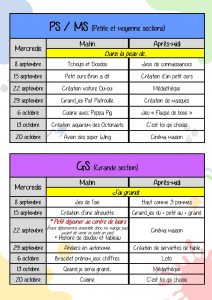 PS / MS (Petite et moyenne sections)
Mercredis Matin Après-midi
Dans la peau de...
8 septembre Tchoupi et Doudou Jeux de connaissances
15 septembre Petit ours Brun a dit Création d'un petit ours
22 septembre Création voiture Oui-oui Médiathèque
29 septembre Grand jeu Pat Patrouille Création de masques
6 octobre Cuisine avec Peppa Pig Jeu « Plaque de boue »
13 octobre Création aquarium des Octonauts C'est toi qui choisis
20 octobre Avion des super Wing Cinéma maison
GS (Grande section)
Mercredis Matin Après-midi
J'ai grandi
8 septembre Jeu de l'oie Haut comme 3 pommes
15 septembre Création d'une silhouette Grand jeu du « petit au » grand
22 septembre * Petit déjeuner au centre de loisirs
* Histoire de doudou et tableau
Cinéma maison
29 septembre Ateliers en autonomie Création de serviettes de table
6 octobre Bracelet prénom jeux chiffres Loto
13 octobre Quand je serai grand Médiathèque
20 octobre Cuisine C'est toi qui choisis